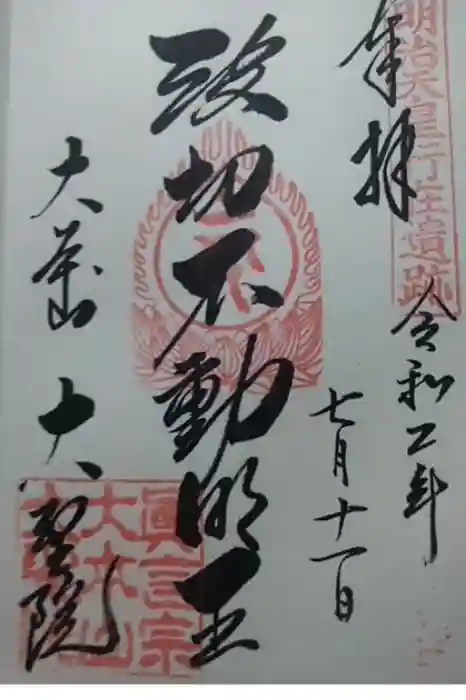 明治天皇行在遺跡
奉拝
令和二年
七月十一日
波切不動明王
大本山 大聖院
眞言宗
大本山
大聖院